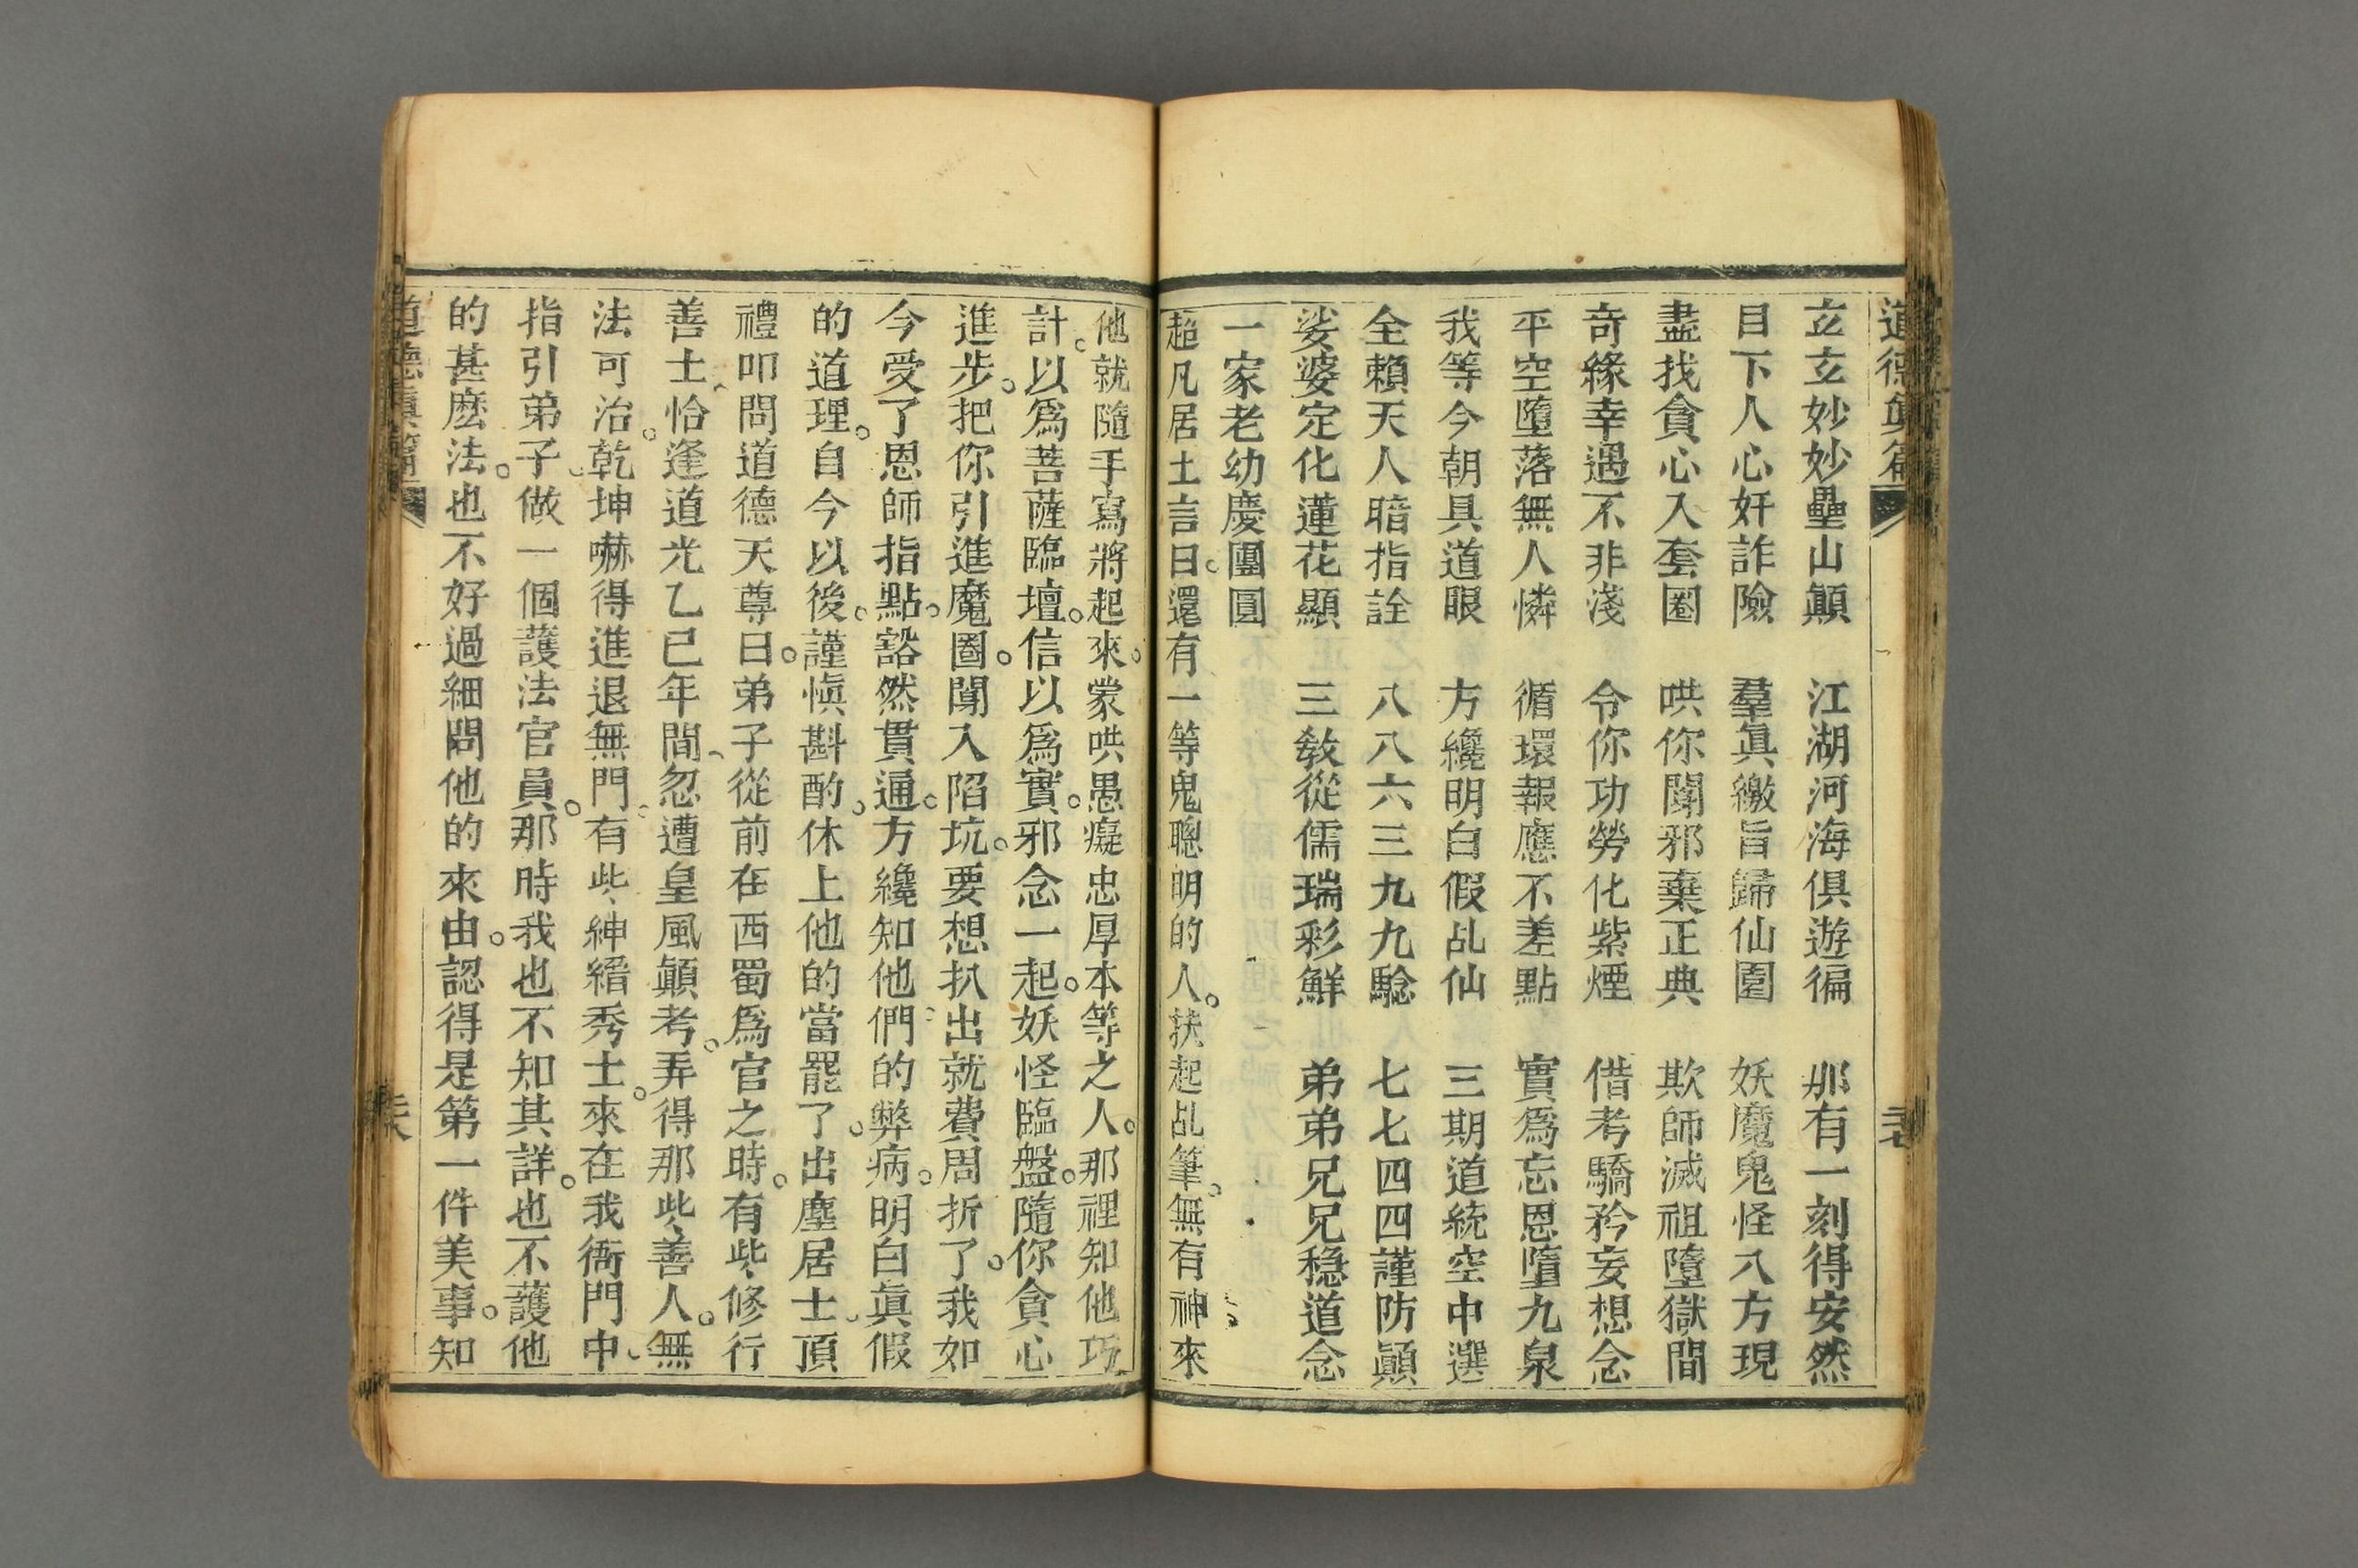 道德真篇
玄玄妙妙壘山顚　江湖河海俱遊徧　那有一刻得安然
目下人心奸詐險　羣眞繳旨歸仙圎　妖魔鬼怪八方現
盡找貪心入套圈　哄你闖邪棄正典　欺師滅祖墮獄間
奇緣幸遇不非淺　令你功勞化紫煙　借考驕矜妄想念
平空墮落無人憐　循環報應不差點　實爲忘恩墮九泉
我等今朝具道眼　方纔明白假乩仙　三期道統空中選
全賴天人暗指詮　八八六三九九騐　七七四四謹防顚
娑婆定化蓮花顯　三敎從儒瑞彩鮮　弟弟兄兄穩道念
一家老幼慶團圓
超凡居士言曰。還有一等鬼聰明的人。扶起乩筆。無有神來
他就隨手寫將起來。蒙哄愚癡忠厚本等之人。那裡知他巧
計。以爲菩薩臨壇。信以爲實。邪念一起。妖怪臨盤。隨你貪心
進步。把你引進魔圈。闖入陷坑。要想扒出就費周折了。我如
今受了恩師指點。豁然貫通。方纔知他們的弊病。明白眞假
的道理。自今以後。謹愼斟酌。休上他的當罷了。出塵居士頂
禮叩問道德天尊曰。弟子從前在西蜀爲官之時。有些修行
善士、恰逢道光乙巳年間、忽遭皇風顚考。弄得那些善人。無
法可治。乾坤嚇得進退無門、有些紳縉秀士。來在我衙門中、
指引弟子、做一個護法官員。那時我也不知其詳。也不護他
的甚麽法。也不好過細問他的來由。認得是第一件美事。知
道德真篇